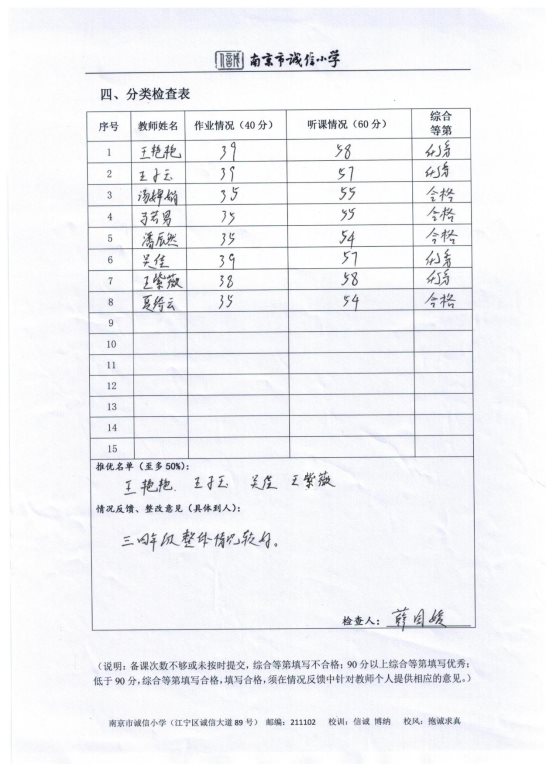 南京市诚信小学
四、分类检查表
序号 教师姓名 作业情况（40分） 听课情况（60分） 综合等第
1 王艳艳 39 58 优秀
2 王子玉 39 57 优秀
3 汤婵娟 35 55 合格
4 35 55 合格
5 潘辰然 35 54 合格
6 吴佳 39 57 优秀
7 王紫薇 38 58 优秀
8 35 54 合格
9
10
11
12
13
14
15
推优名单（至多50%）：
王艳艳、王子玉 吴佳 王紫薇
情况反馈、整改意见（具体到人）：
三四年级整体情况较好。
检查人：薛
（说明：备课次数不够或未按时提交，综合等第填写不合格；90分以上综合等第填写优秀；
低于90分，综合等第填写合格，填写合格，须在情况反馈中针对教师个人提供相应的意见。）
南京市诚信小学（江宁区诚信大道89号） 邮编：211102 校训：信诚 博纳 校风：抱诚求真